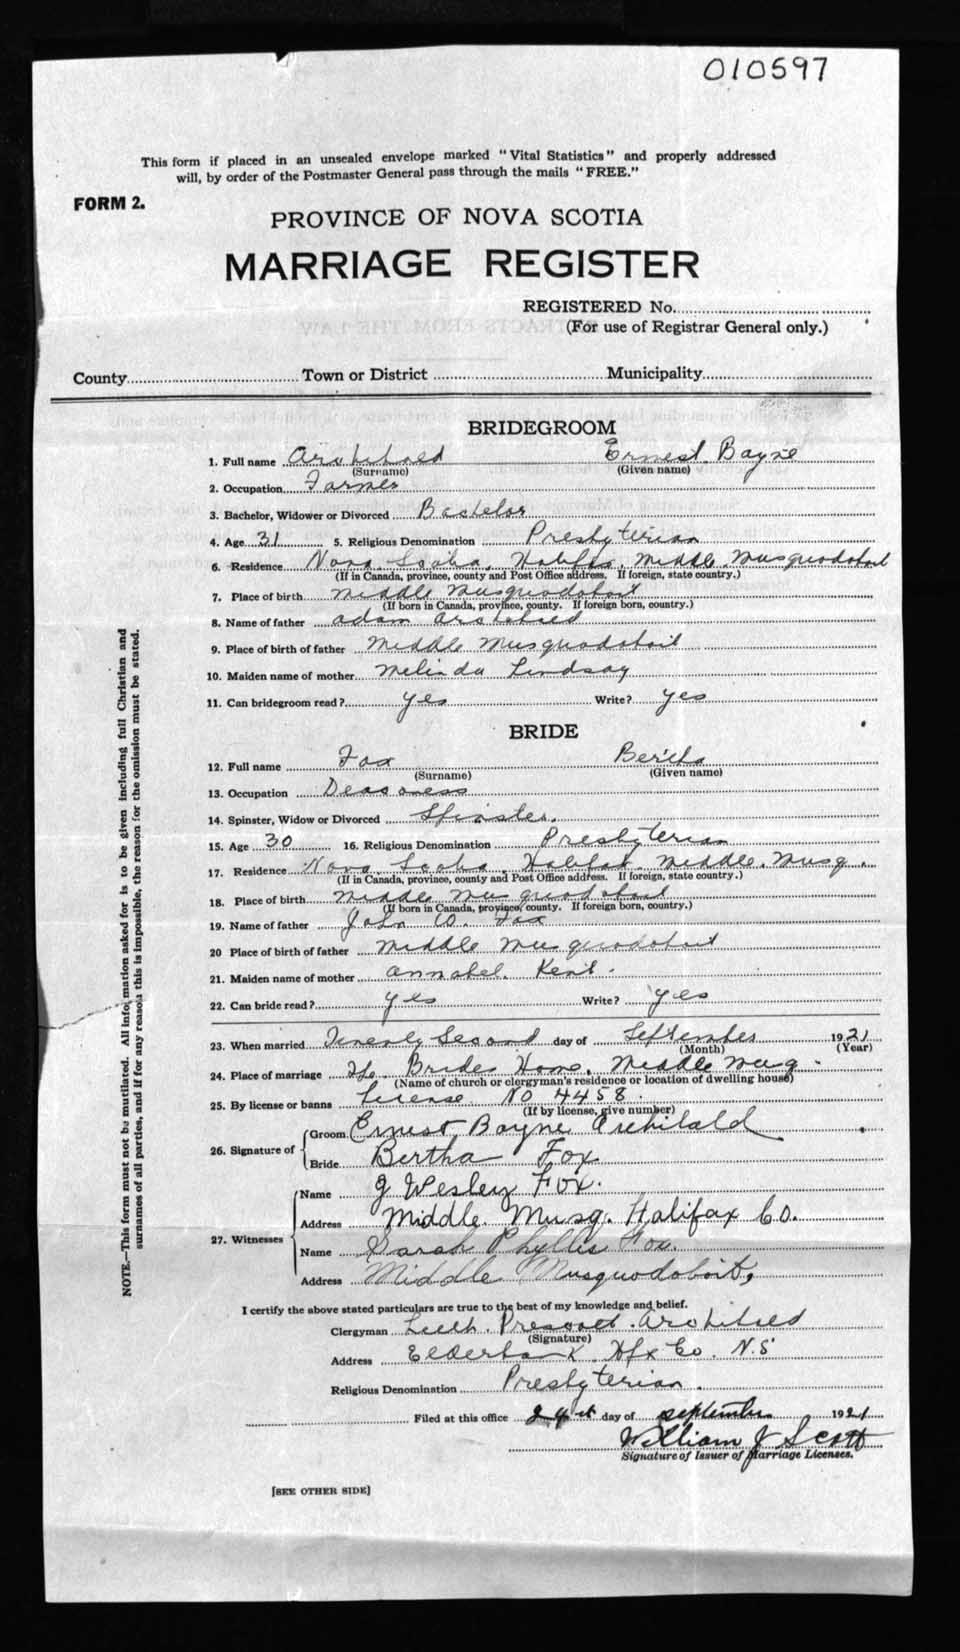 010597
This form if placed in an unsealed envelope marked "Vital Statistics" and properly addressed
will, by order of the Postmaster General pass through the mails "FREE."
FORM 2.
PROVINCE OF NOVA SCOTIA
MARRIAGE REGISTER
REGISTERED No.
(For use of Registrar General only.)
County Town or District Municipality
BRIDEGROOM
1. Full name Archibald Ernest Bayne
(Surname) (Given name)
2. Occupation Farmer
3. Bachelor, Widower or Divorced Bachelor
4. Age 31 5. Religious Denomination Presbyterian
6. Residence Nova Scotia, Halifax, Middle Musquodoboit
(If in Canada, province, county and Post Office address. If foreign, state country.)
7. Place of birth Middle Musquodoboit
(If born in Canada, province, county. If foreign born, country.)
8. Name of father Adam Archibald
9. Place of birth of father Middle Musquodoboit
10. Maiden name of mother Melinda Lindsay
11. Can bridegroom read? yes Write? yes
BRIDE
12. Full name Fox Bertha
(Surname) (Given name)
13. Occupation Deaconess
14. Spinster, Widow or Divorced Spinster.
15. Age 30 16. Religious Denomination Presbyterian
17. Residence Nova Scotia, Halifax, Middle Musq.
(If in Canada, province, county and Post Office address. If foreign, state country.)
18. Place of birth Middle Musquodoboit
(If born in Canada, province, county. If foreign born, country.)
19. Name of father John W. Fox
20 Place of birth of father Middle Musquodoboit
21. Maiden name of mother Annabel Kent.
22. Can bride read? yes Write? yes
23. When married Twenty Second day of September 1921
(Month) (Year)
24. Place of marriage The Brides Home, Middle Musq.
(Name of church or clergyman's residence or location of dwelling house)
25. By license or banns License No 4458.
(If by license, give number)
26. Signature of
Groom Ernest Bayne Archibald
Bride Bertha Fox
27. Witnesses
Name J Wesley Fox.
Address Middle Musq. Halifax Co.
Name Sarah Phyllis Fox.
Address Middle Musquodoboit,
I certify the above stated particulars are true to the best of my knowledge and belief.
Clergyman Prescott Archibald
(Signature)
Address Elderbank Hfx Co. N.S
Religious Denomination Presbyterian.
Filed at this office day of September 1921
William J Scott
Signature of Issuer of Marriage Licenses.
[SEE OTHER SIDE]
NOTE.—This form must not be mutilated. All information asked for is to be given including full Christian and
surnames of all parties, and if for any reason this is impossible, the reason for the omission must be stated.